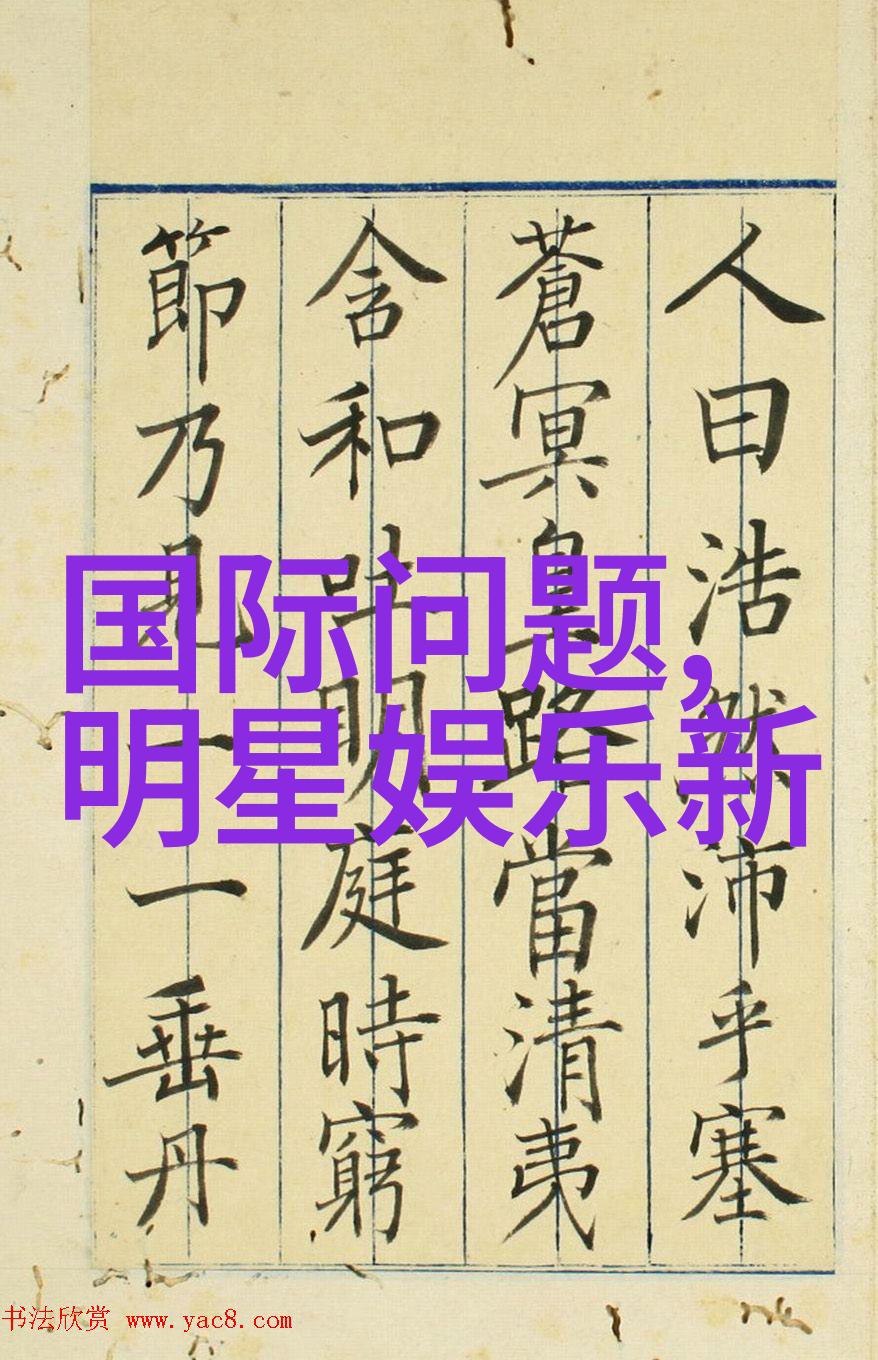 人曰浩然沛乎塞
蒼冥皇路當清夷
含和吐明庭時窮
節乃見一一垂丹
国际问题,
明星娱乐新
书法欣赏 www.yac8.com